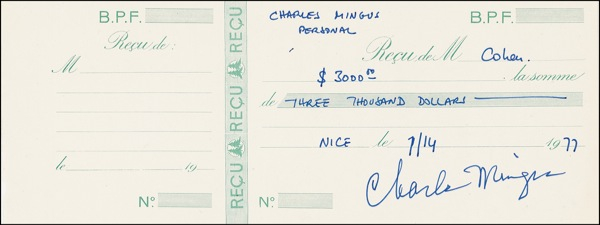 B.P.F.
Reçu de:
M
le 19
Nº
REÇU REÇU REÇU
CHARLES MINGUS
PERSONAL
B.P.F.
Reçu de M Cohen.
$ 3000 00 la somme
de THREE THOUSAND DOLLARS
NICE le 7/14 1977
Nº
Charles Mingus